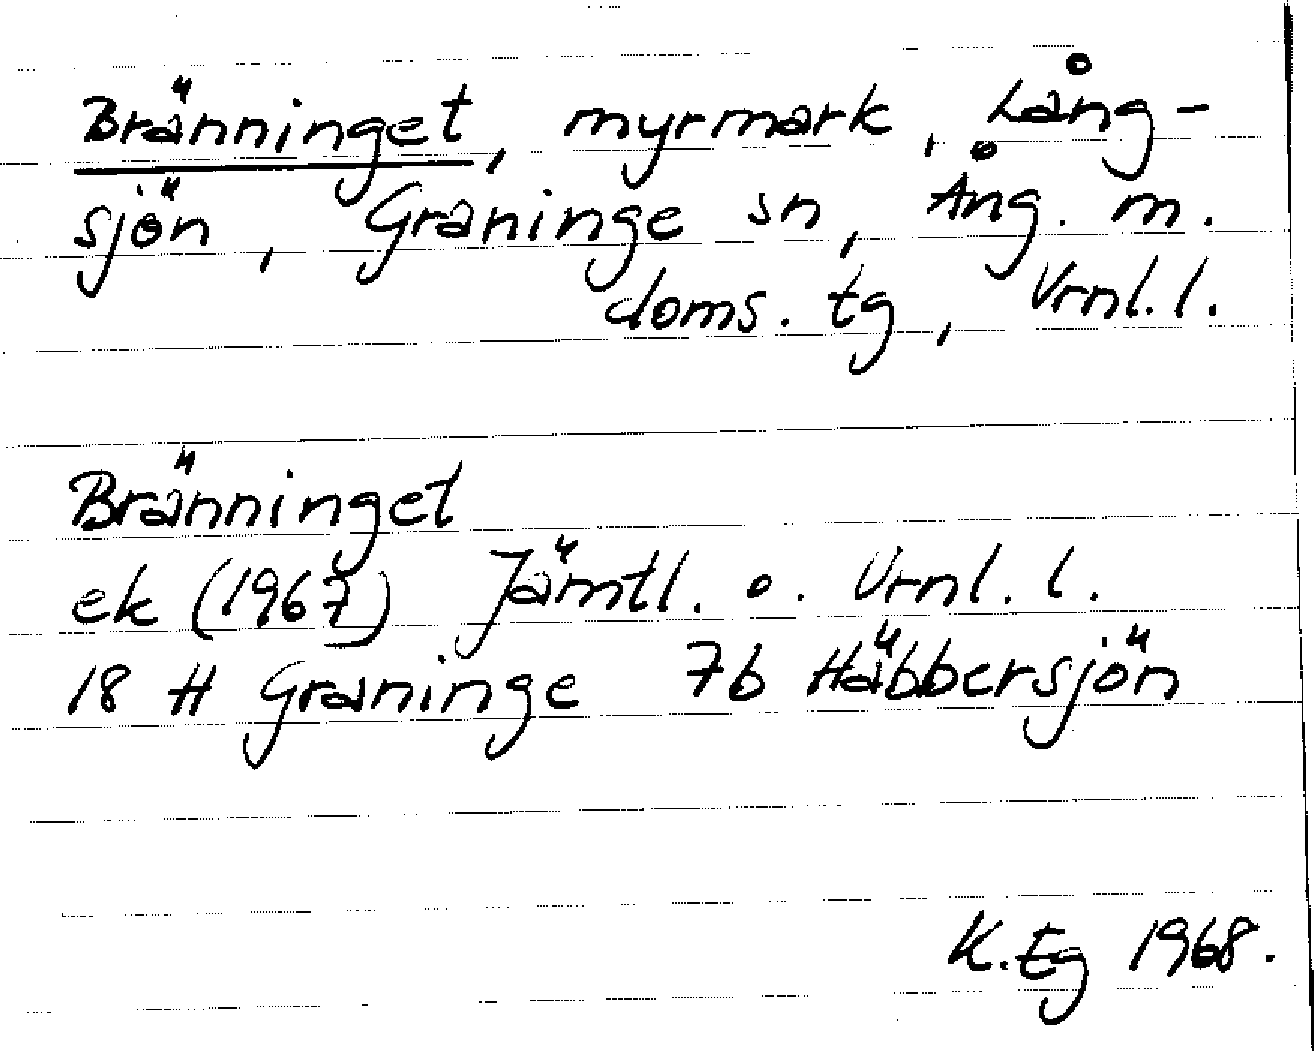 Bränninget, myrmark, Lång-
sjön, Graninge sn, Ång. m.
doms. tg, Vrnl. l.
Bränninget
ek (1967) Jämtl. o. Vrnl. l.
18 H Graninge 7b Häbbersjön
K. Eg 1968.